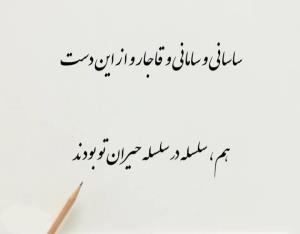 ساسانی و سامانی و قاجار و از این دست
هم ، سلسله در سلسله حیران تو بودند